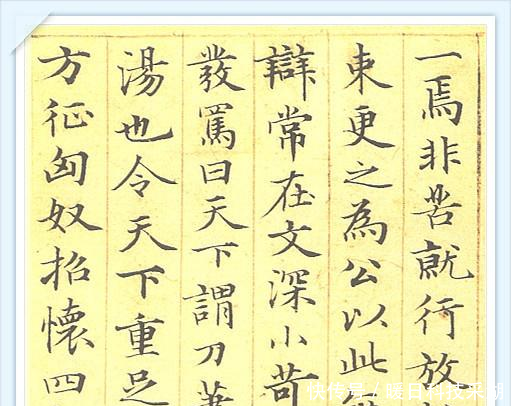 一焉非苦就行放
束更之為公以此
辯常在文深小苛
發罵曰天下謂刀筆
湯也令天下重足
方征匈奴招懷四
快传号